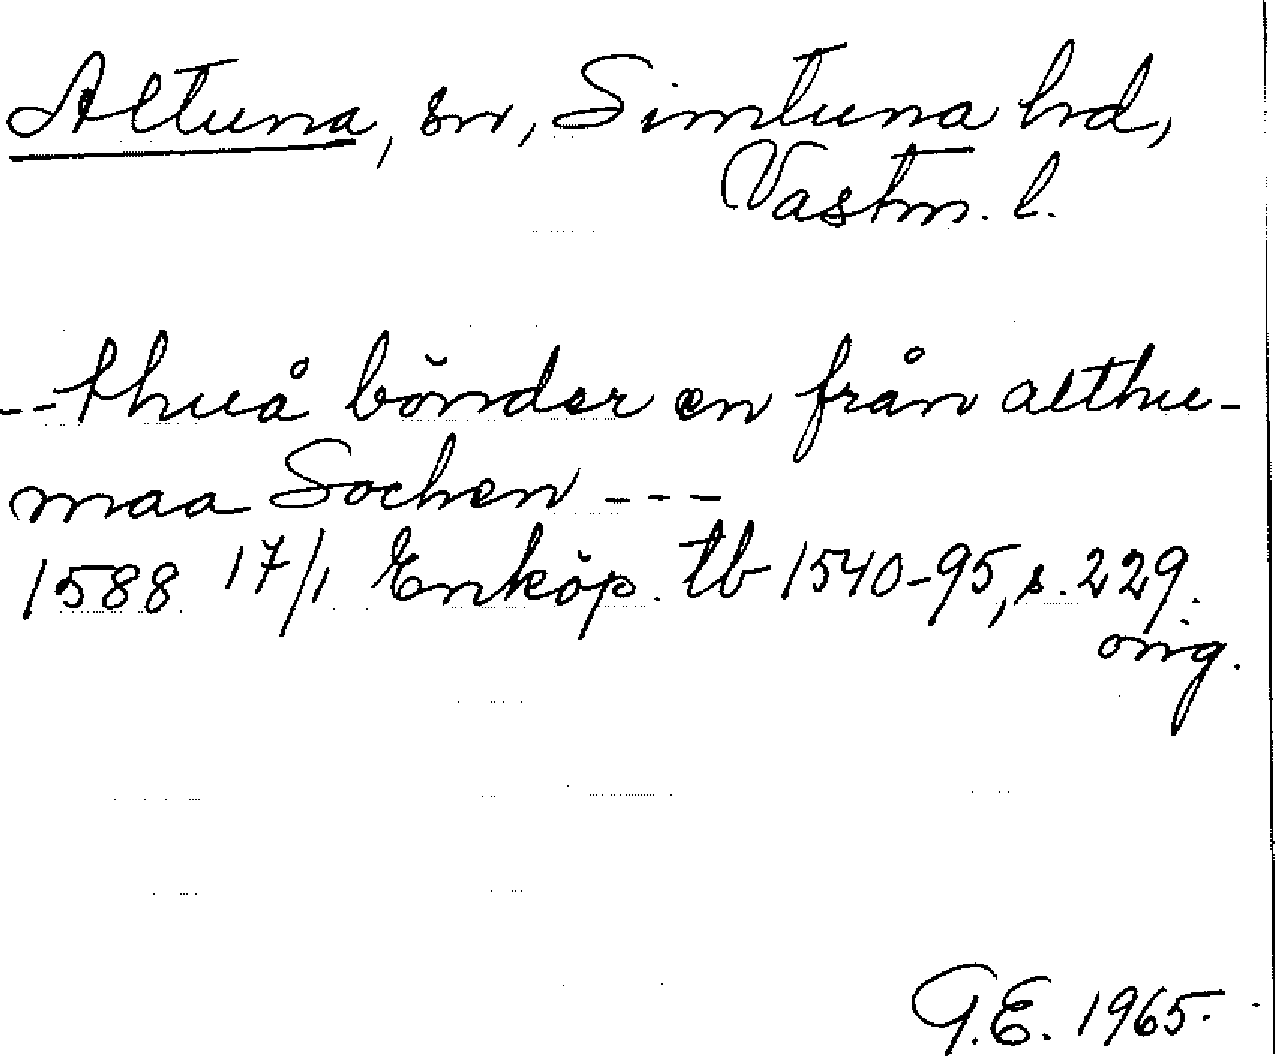 Altuna, sn, Simtuna hd,
Västm. l.
--thuå bönder en från althu-
maa Sochen ---
1588 17/1 Enköp. tb 1540-95, s. 229.
orig.
G.E. 1965.